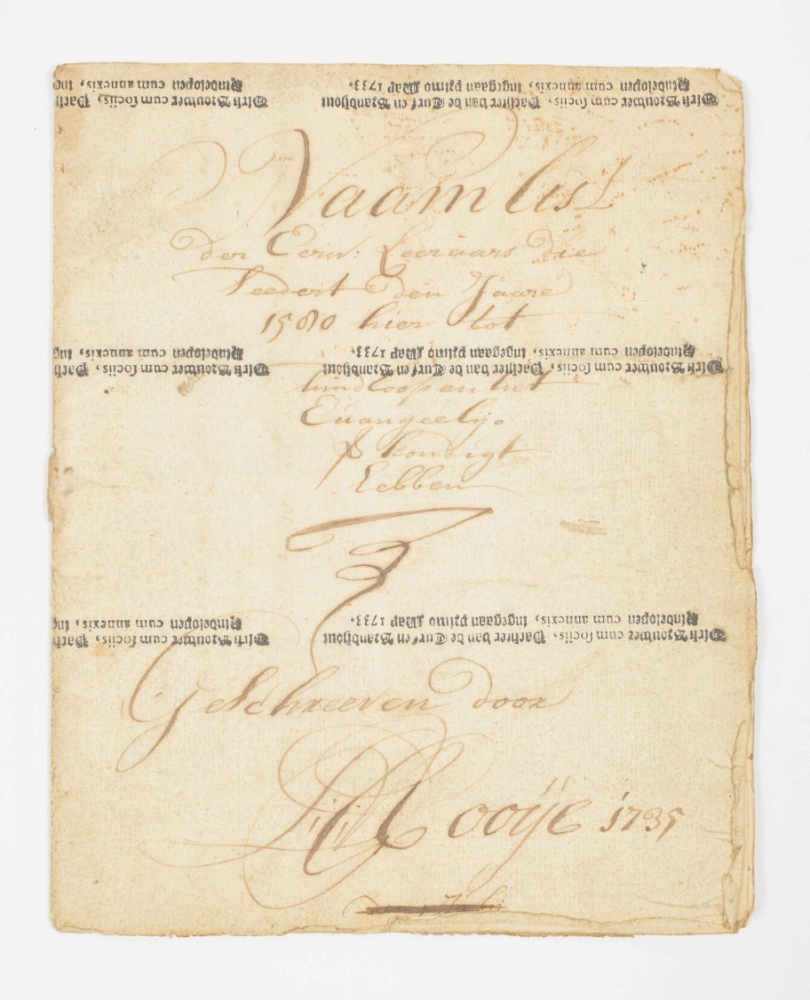 Hindelopen cum annexis, ingegaan primo May 1733.
Dirk Brouwer cum sociis, Pachter van de Turf en Brandhout
Naam list
der Eerw: Leeraars die
Seedert den Jaare
1580 hier tot
Hindelopen cum annexis, ingegaan primo May 1733.
Dirk Brouwer cum sociis, Pachter van de Turf en Brandhout
hindloopen het
Euangeelij
kondigt
hebben
Hindelopen cum annexis, ingegaan primo May 1733.
Dirk Brouwer cum sociis, Pachter van de Turf en Brandhout
Geschreeven door
Kooije 1735